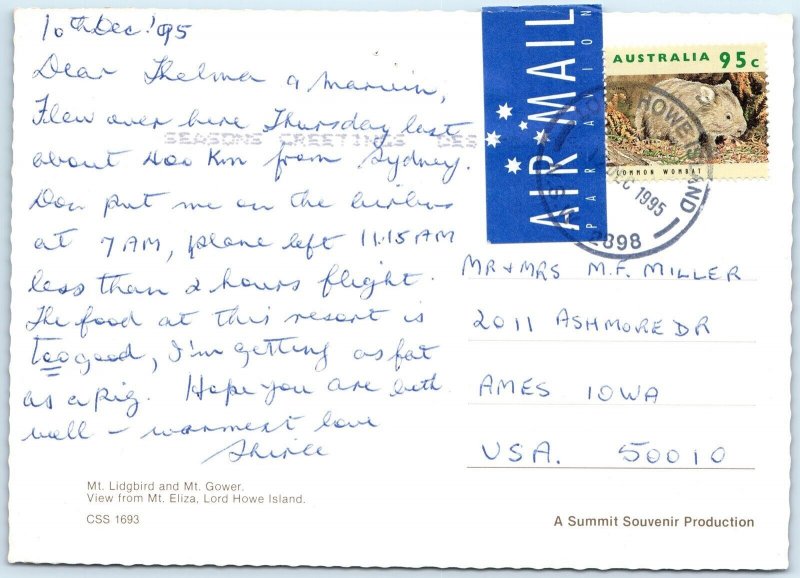 10th Dec '95
Dear Thelma & Marvin,
Flew over here Thursday last
SEASONS GREETINGS
about 400 Km from Sydney.
Don put me on the airbus
at 7 AM, plane left 11.15 AM
less than 2 hours flight.
The food at this resort is
too good, I'm getting as fat
as a pig. Hope you are both
well - warmest love
Shirlee
Mt. Lidgbird and Mt. Gower.
View from Mt. Eliza, Lord Howe Island.
CSS 1693
AIR MAIL
PAR AVION
AUSTRALIA 95c
COMMON WOMBAT
LORD HOWE ISLAND
DEC 1995
2898
MR & MRS M.F. MILLER
2011 ASHMORE DR
AMES IOWA
USA. 50010
A Summit Souvenir Production